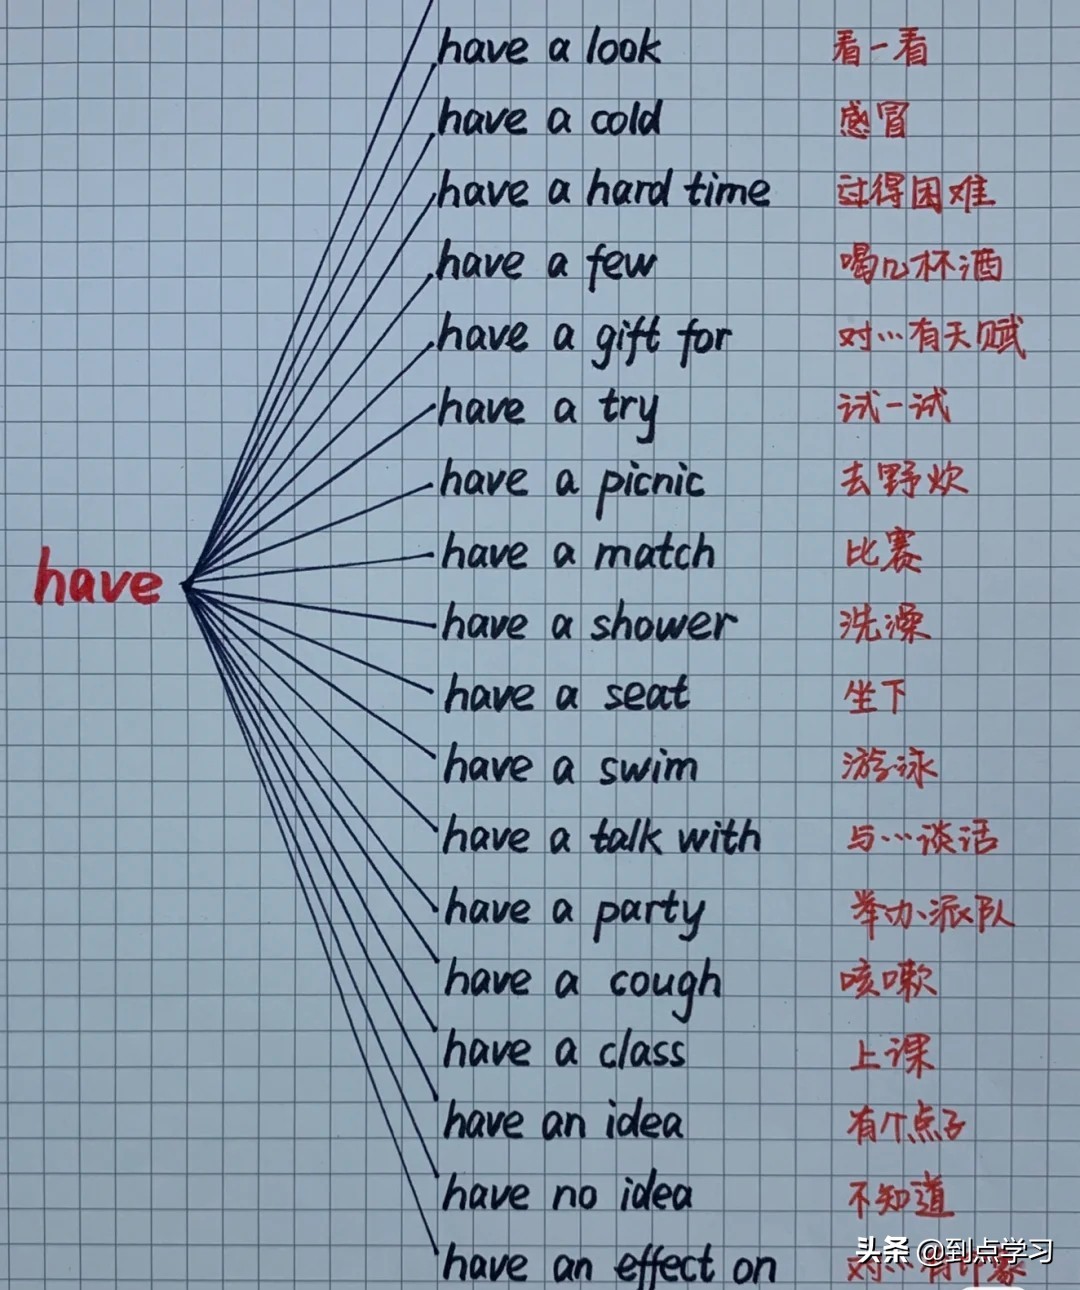 have a look 看一看
have a cold 感冒
have a hard time 过得困难
have a few 喝几杯酒
have a gift for 对…有天赋
have a try 试一试
have a picnic 去野炊
have a match 比赛
have
have a shower 洗澡
have a seat 坐下
have a swim 游泳
have a talk with 与…谈话
have a party 举办派队
have a cough 咳嗽
have a class 上课
have an idea 有个点子
have no idea 不知道
头条 @到点学习
have an effect on 对…有印象